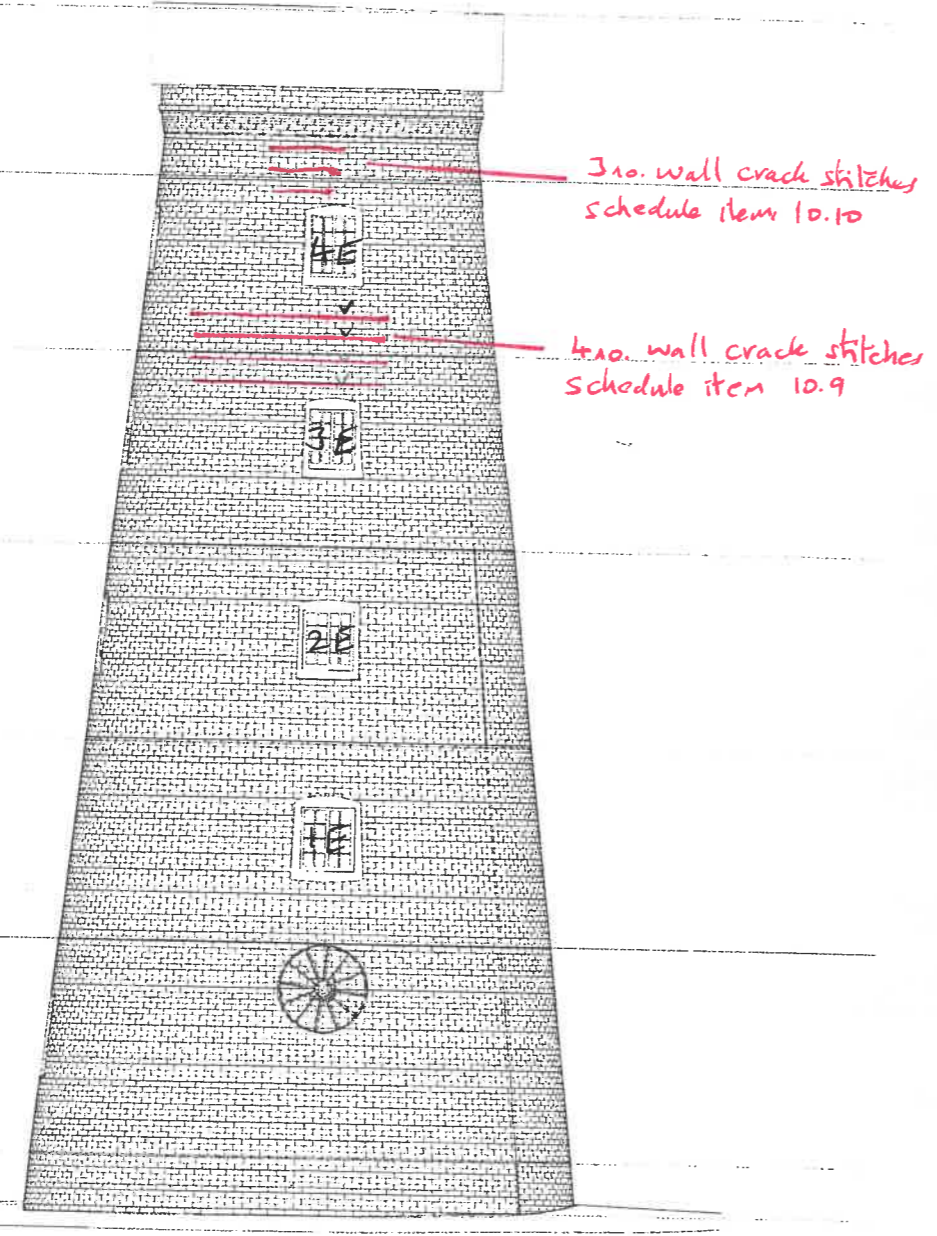 3no. wall crack stitches
schedule item 10.10
4E
4no. wall crack stitches
schedule item 10.9
3E
2E
1E